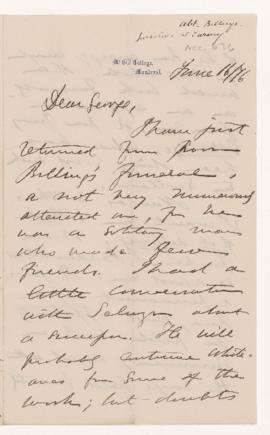 Abt. Billings.
Acc. 676
McGill College,
Montreal.
June 16/76
Dear George,
I have just
returned from poor
Billings's funeral,
a not very numerously
attended one, for he
was a solitary man
who made few
friends. I had a
little conversation
with Selwyn about
a successor. He will
probably continue White-
aves for some of the
work; but doubts